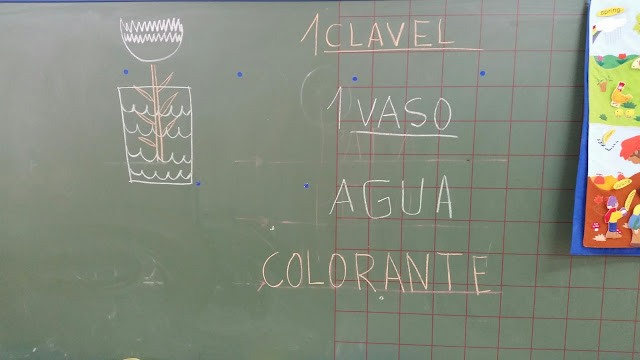 1 CLAVEL
1 VASO
AGUA
COLORANTE
spring